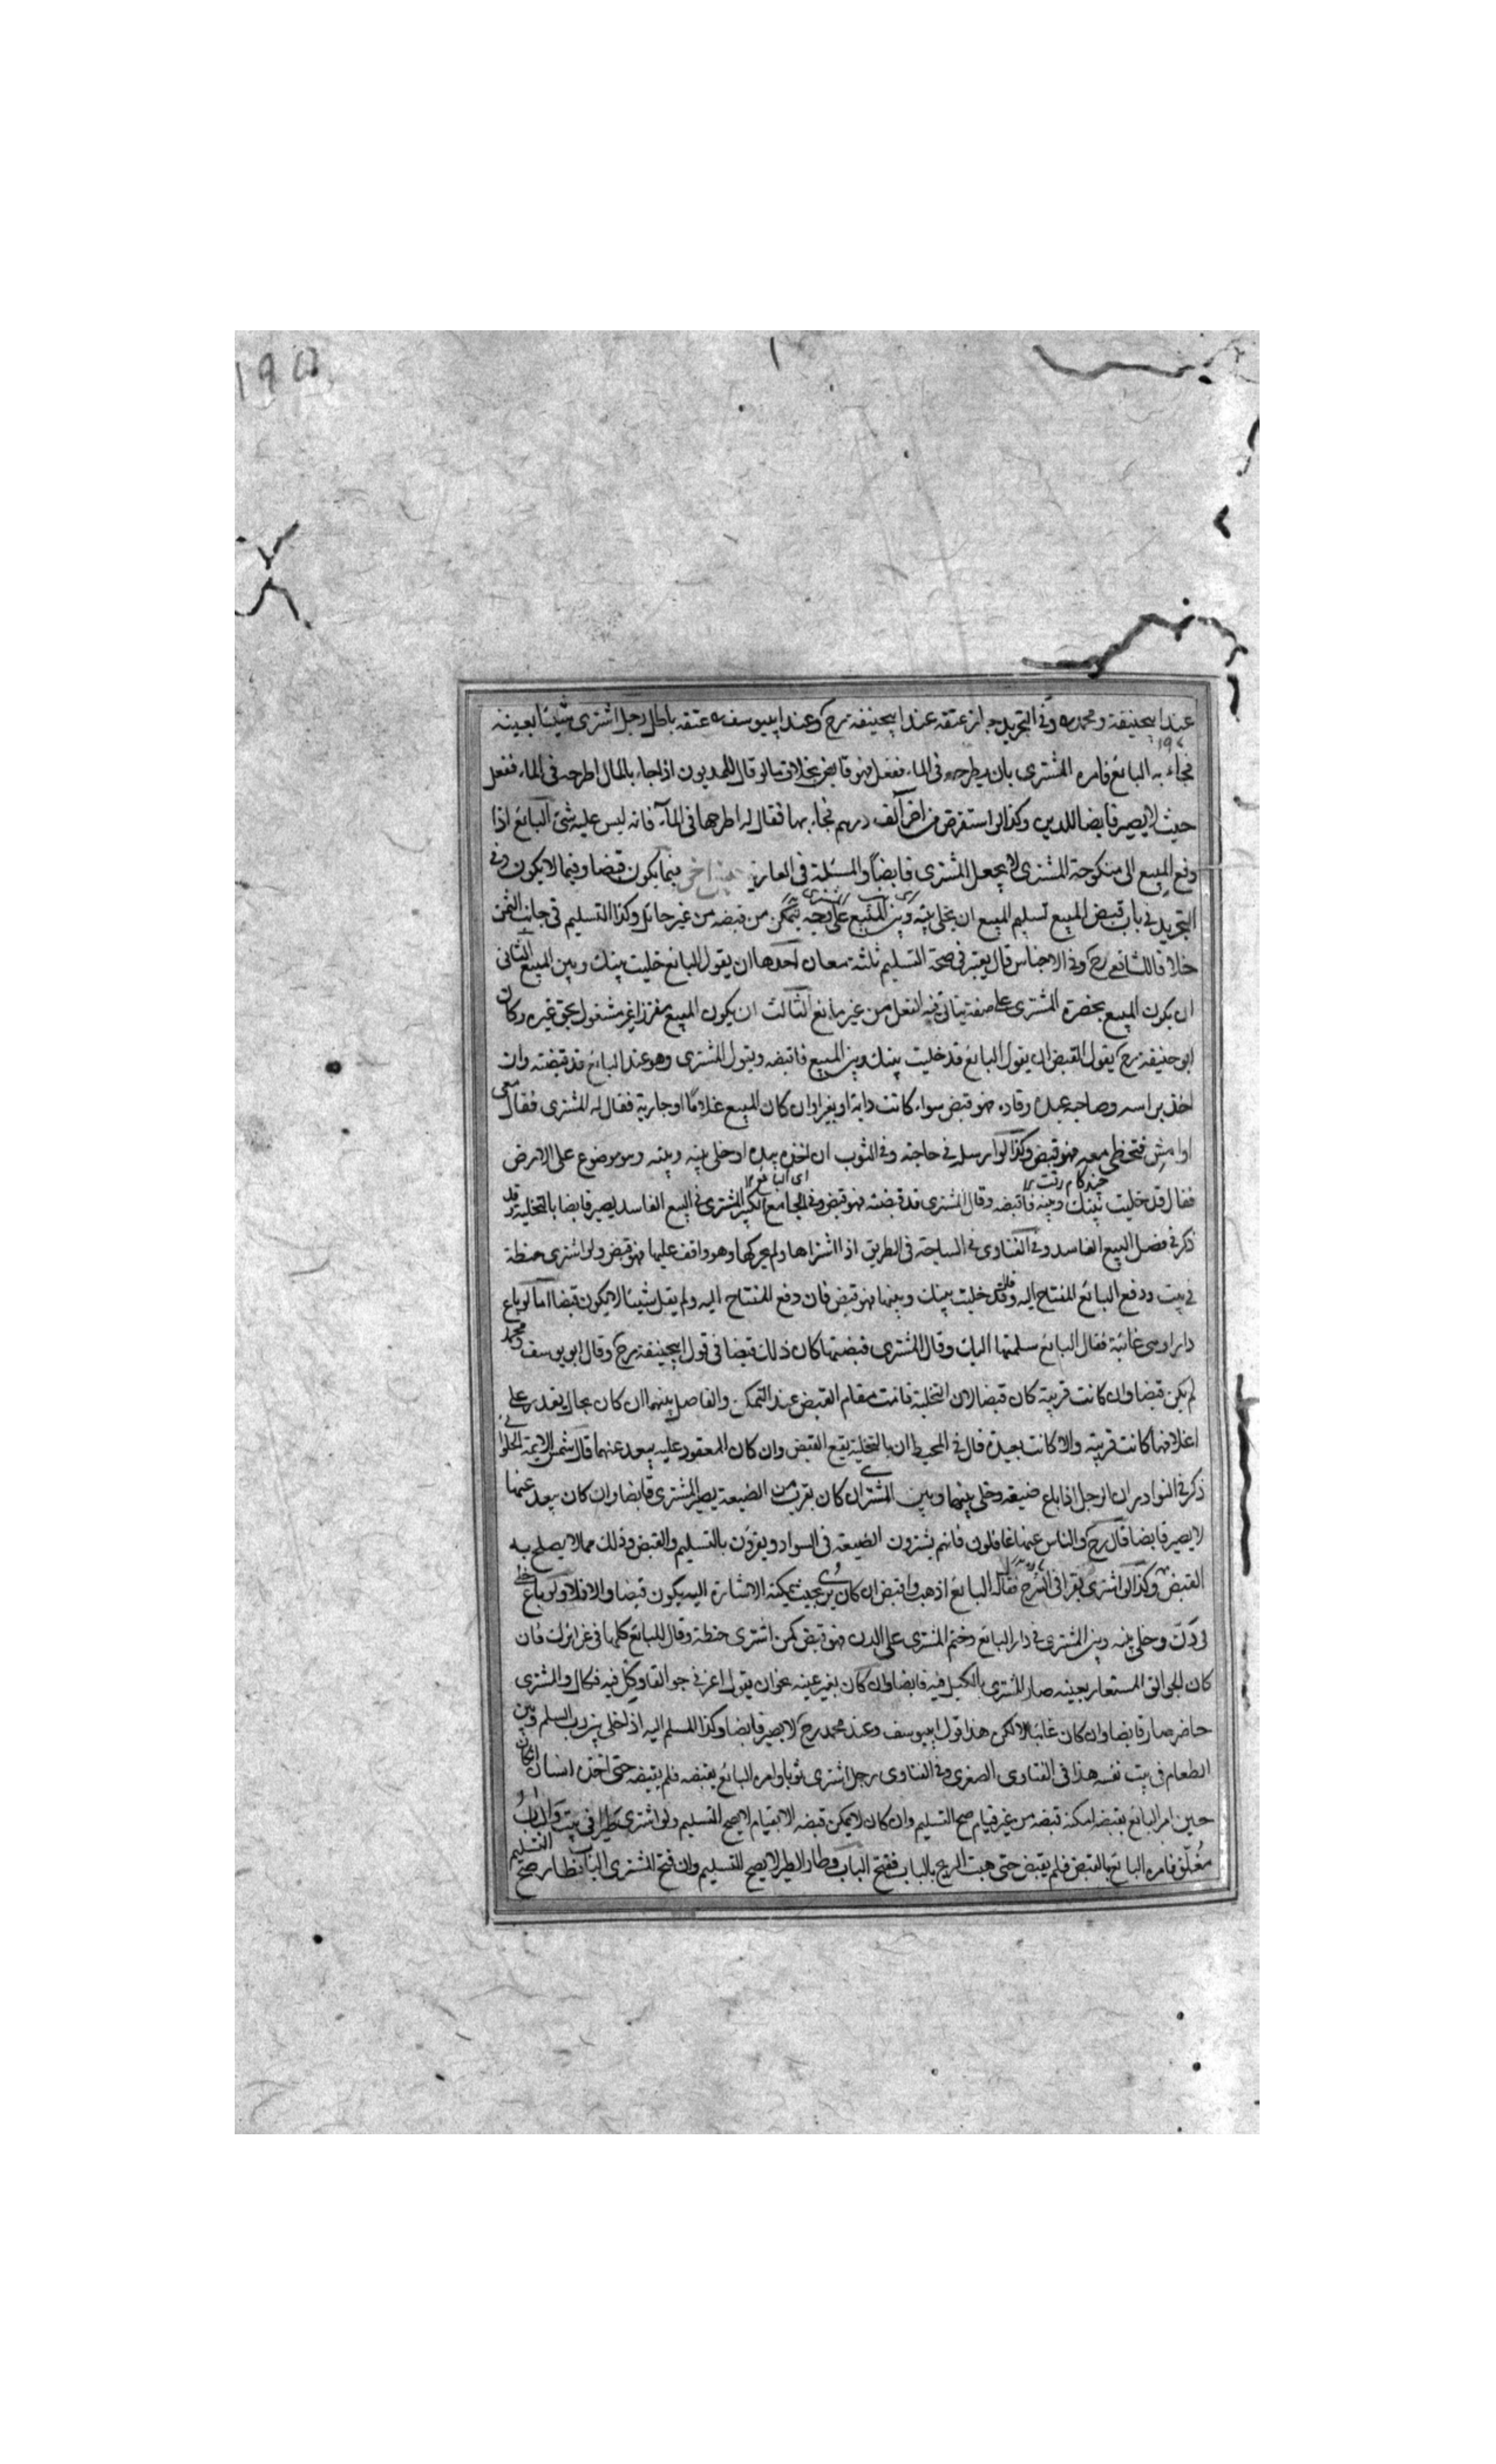 عند ابيحنيفة ومحمد رح وفى التجريد جاز عتقه عند ابيحنيفة رح وعند ابييوسف رح عتقه باطل رجل اشترى شيئا بعينه
فجاء به البائع فامره المشترى بان يطرحه فى الماء ففعل فهو قابض بخلاف مالو قال للمديون اذا جاء بالمال اطرحه فى الماء ففعل
حيث لا يصير قابضا للدين وكذا لو استقرض من اخر الف درهم فجاء بها فقال له اطرحها فى الماء فانه ليس عليه شئ البائع اذا
دفع المبيع الى منكوحة المشترى لا يجعل المشترى قابضا والمسئلة فى العارية فيما يكون قبضا وفيما لا يكون وفى
التجريد فى باب قبض المبيع تسليم المبيع ان يخلى بينه وبين المبيع على وجه يتمكن من قبضه من غير حائل وكذا التسليم فى جانب الثمن
خلافا للشافعى رح وفى الاجناس قال يعتبر فى صحة التسليم ثلثة معان احدها ان يقول البائع خليت بينك وبين المبيع الثانى
ان يكون المبيع بحضرة المشترى على صفة يتاتى فيه الفعل من غير مانع الثالث ان يكون المبيع مفرزا غير مشغول بحق غيره وكان
ابو حنيفة رح يقول القبض ان يقول البائع قد خليت بينك وبين المبيع فاقبضه ويقول المشترى وهو عند البائع قد قبضته وان
اخذ براسه وصاحبه عنده وقاده فهو قبض سواء كانت دابة او بعيرا وان كان المبيع غلاما او جارية فقال له المشترى فقال معى
او امش فتخطى معه فهو قبض وكذا لو ارسله فى حاجته وفى الثوب ان اخذه بيده او خلى بينه وبينه وهو موضوع على الارض
چند كام رفت اى البائع
فقال قد خليت بينك وبينه فاقبضه وقال المشترى قد قبضته فهو قبض وفى الجامع الكبير المشترى فى البيع الفاسد يصير قابضا بالتخلية وقد
ذكر فى فصل البيع الفاسد وفى الفتاوى فى الساجة فى الطريق اذا اشتراها ولم يحركها وهو واقف عليها فهو قبض ولو اشترى حنطة
فى بيت ودفع البائع المفتاح اليه وقال قد خليت بينك وبينها فهو قبض فان دفع المفتاح اليه ولم يقل شيئا لا يكون قبضا اما لو باع
دارا وهى غائبة فقال البائع سلمتها اليك وقال المشترى قبضتها كان ذلك قبضا فى قول ابيحنيفة رح وقال ابو يوسف ومحمد
لم يكن قبضا وان كانت قريبة كان قبضا لان التخلية قامت مقام القبض عند التمكن والفاصل بينهما ان كان بحال يقدر على
اغلاقها كانت قريبة والا كانت بعيدة قال فى المحيط ان بالتخلية يقع القبض وان كان المعقود عليه يبعد عنهما قال شمس الايمة الحلوانى
ذكر فى النوادر ان الرجل اذا باع ضيعة وخلى بينها وبين المشترى ان كان بقرب من الضيعة يصير المشترى قابضا وان كان يبعد عنها
لا يصير قابضا قال رح والناس عنها غافلون فانهم يشترون الضيعة فى السواد ويقرون بالتسليم والقبض وذلك مما لا يصلح به
القبض وكذا لو اشترى بقرا فى السرح فقال له البائع اذهب واقبض ان كان يرى بحيث يمكنه الاشارة اليه يكون قبضا والا فلا ولو باع خلا
فى دن وخلى بينه وبين المشترى فى دار البائع وختم المشترى على الدن فهو قبض كمن اشترى حنطة وقال للبائع كلها فى غرائرك فان
كان الجوالق المستعار بعينه صار المشترى بالكيل فيه قابضا وان كان بغير عينه نحو ان يقول اعرنى جوالقا وكل فيه فكال والمشترى
حاضر صار قابضا وان كان غائبا لا لكن هذا قول ابييوسف وعند محمد رح لا يصير قابضا وكذا المسلم اليه اذا خلى بين رب السلم وبين
الطعام فى بيت نفسه هذا فى الفتاوى الصغرى وفى الفتاوى رجل اشترى ثوبا وامره البائع بقبضه فلم يقبضه حتى اخذه انسان ان كان
حين امر البائع بقبضه امكنه قبضه من غير قيام صح التسليم وان كان لا يمكن قبضه الا بقيام لا يصح التسليم ولو اشترى طيرا فى بيت والباب
مغلق فامره البائع بالقبض فلم يقبض حتى هبت الريح بالباب ففتح الباب وطار الطير لا يصح التسليم وان فتح المشترى الباب فطار صح التسليم